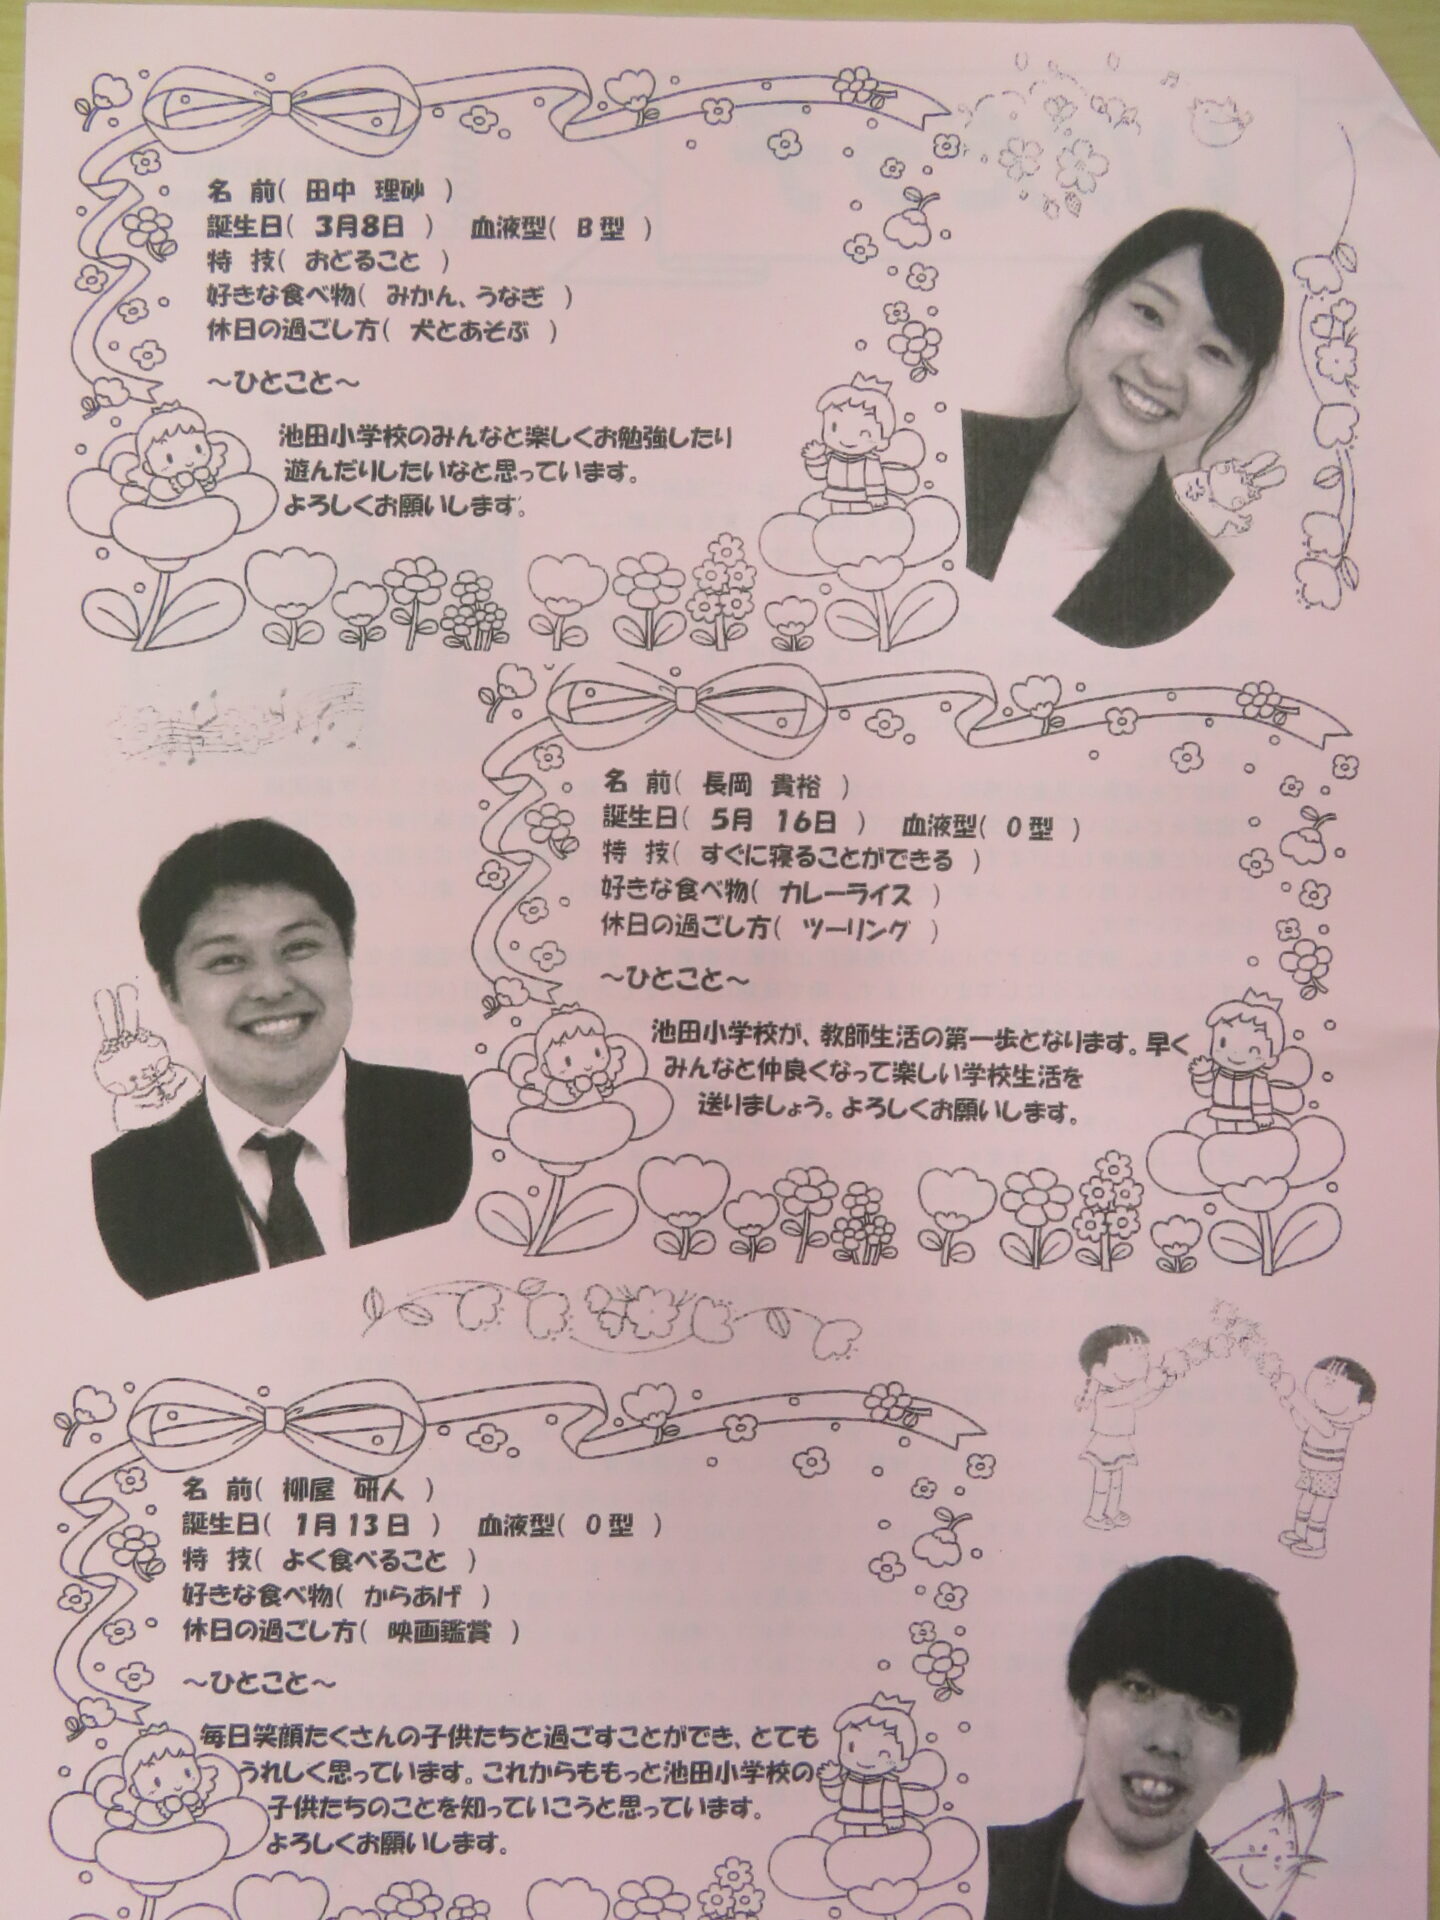 名 前( 田中 理砂 )
誕生日( 3月8日 ) 血液型( B 型 )
特 技( おどること )
好きな食べ物( みかん、うなぎ )
休日の過ごし方( 犬とあそぶ )
～ひとこと～
池田小学校のみんなと楽しくお勉強したり
遊んだりしたいなと思っています。
よろしくお願いします。
名 前( 長岡 貴裕 )
誕生日( 5月 16日 ) 血液型( O 型 )
特 技( すぐに寝ることができる )
好きな食べ物( カレーライス )
休日の過ごし方( ツーリング )
～ひとこと～
池田小学校が、教師生活の第一歩となります。早く
みんなと仲良くなって楽しい学校生活を
送りましょう。よろしくお願いします。
名 前( 柳屋 研人 )
誕生日( 1月 13日 ) 血液型( O 型 )
特 技( よく食べること )
好きな食べ物( からあげ )
休日の過ごし方( 映画鑑賞 )
～ひとこと～
毎日笑顔たくさんの子供たちと過ごすことができ、とても
うれしく思っています。これからももっと池田小学校の
子供たちのことを知っていこうと思っています。
よろしくお願いします。